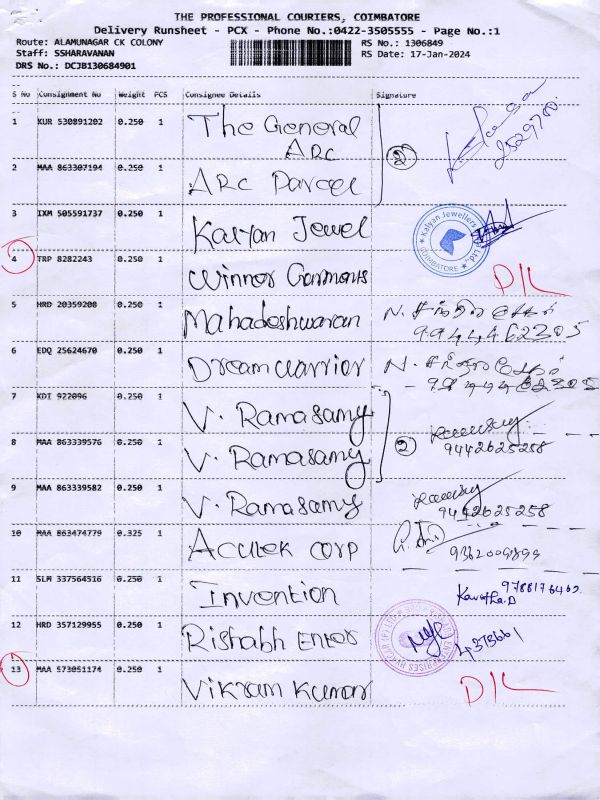 THE PROFESSIONAL COURIERS, COIMBATORE
Delivery Runsheet - PCX - Phone No.:0422-3505555 - Page No.:1
Route: ALAMUNAGAR CK COLONY RS No.: 1306849
Staff: SSHARAVANAN RS Date: 17-Jan-2024
DRS No.: DCJB130684901
S No Consignment No Weight PCS Consignee Details Signature
1 KUR 530891202 0.250 1 The General ARC
2529780
2 MAA 863307194 0.250 1 ARC Parcel 2
3 IXM 505591737 0.250 1 Kalyan Jewel Kalyan Jewellers COIMBATORE
4 TRP 8282243 0.250 1 Winner Garments D/L
5 HRD 20359208 0.250 1 Mahadeshwaran 9944462305
6 EDQ 25624670 0.250 1 Dreamwarrior
7 KDI 922096 0.250 1 V. Ramasamy
8 MAA 863339576 0.250 1 V. Ramasamy 2 9442625258
9 MAA 863339582 0.250 1 V. Ramasamy 9442625258
10 MAA 863474779 0.325 1 Acutek corp
11 SLM 337564516 0.250 1 Invention Kavitha.D
12 HRD 357129955 0.250 1 Rishabh Enter
13 MAA 573051174 0.250 1 Vikram Kumar D/L